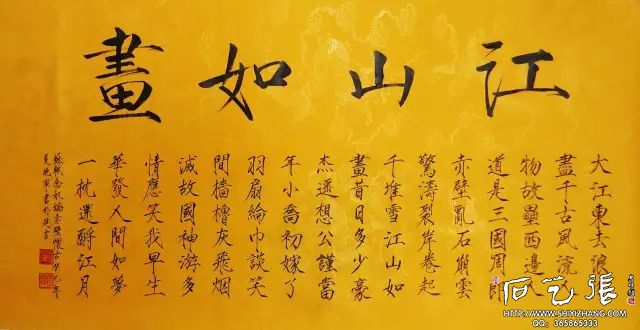 江山如畫
大江東去浪
盡千古風流人
物故壘西邊人
道是三國周郎
赤壁亂石崩雲
驚濤裂岸卷起
千堆雪江山如
畫昔日多少豪
杰遙想公謹當
年小喬初嫁了
羽扇綸巾談笑
間檣櫓灰飛烟
滅故國神游多
情應笑我早生
華發人間如夢
一枕還酹江月
蘇軾念奴嬌赤壁懷古
石艺張
WWW.SHIYIZHANG.COM
QQ: 365865333